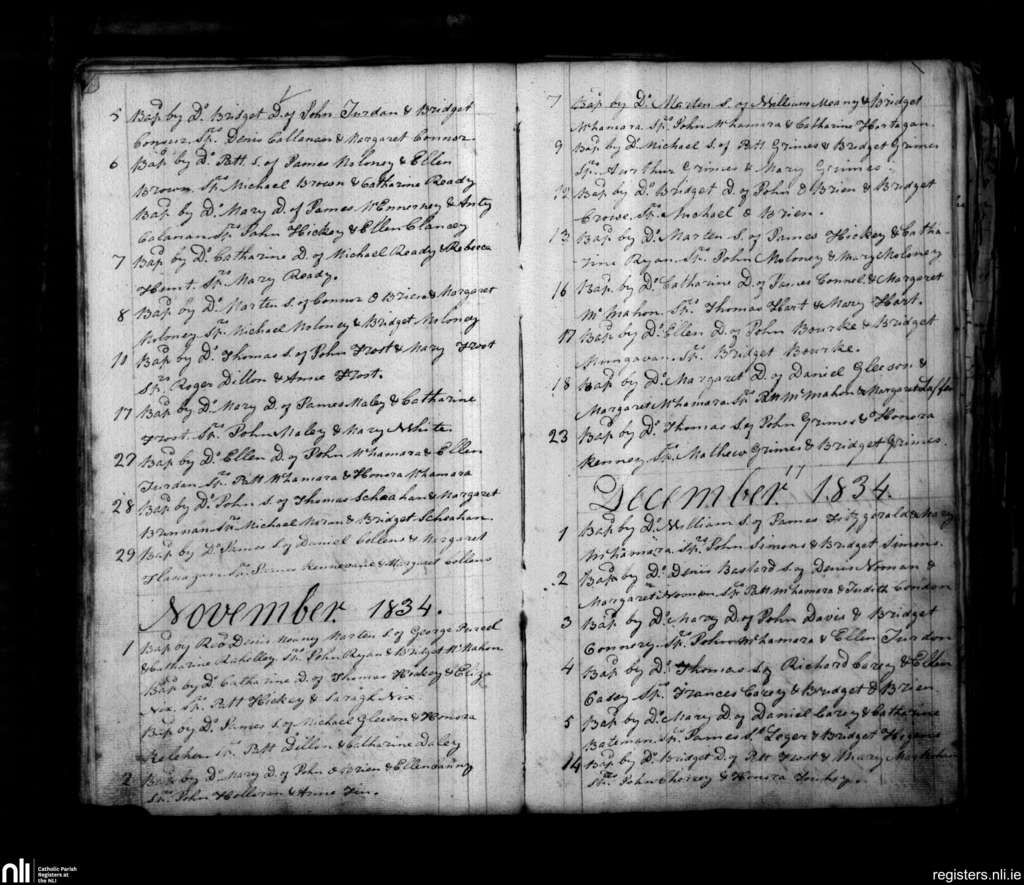 5 Bap. by Do. Bridget D. of John Jurdan & Bridget
Conours. Sps. Denis Callanan & Margaret Connor
6 Bap. by Do. Patt S. of James Moloney & Ellen
Brown. Sps. Michael Brown & Catharine Ready
Bap. by Do. Mary D. of James McEnnorney & Anty
Calanan Sps. John Hickey & Ellen Clancey
7 Bap. by Do. Catharine D. of Michael Ready & Rebecca
Sps. Mary Ready.
8 Bap. by Do. Marten S. of Connor O Brien & Margaret
Moloney. Sps. Michael Moloney & Bridget Moloney
10 Bap. by Do. Thomas S. of John Frost & Mary Frost
Sps. Roger Dillon & Anne Frost.
17 Bap. by Do. Mary D. of James Maley & Catharine
Frost. Sps. John Maley & Mary White
27 Bap. by Do. Ellen D. of John McNamara & Ellen
Jurdan Sps. Patt McHamara & Honora McHamara
28 Bap. by Do. John. S. of Thomas Scheahan & Margaret
Brennan. Sps. Michael Moran & Bridget Scheahan.
29 Bap. by Do. James S. of Daniel Collens & Margaret
Flanagan. Sps. James & Margaret Collens
November. 1834.
1 Bap. by Revd. Denis Marten S. of George Purcel
& Catharine Sps. John Ryan & Bridget McMahon
Bap. by Do. Catharine D. of Thomas Hickey & Eliza
Nix. Sps. Patt Hickey & Saragh Nix.
Bap. by Do. James S. of Michael Gleeson & Honora
Keleher. Sps. Patt Dillon & Catharine Daley
2 Bap. by Do. Mary D. of John O Brien & Ellen
Sps. John Holloran & Anne
7 Bap. by Do. Marten S. of William Meany & Bridget
McHamara. Sps. John McHamara & Catharine Hartagan.
9 Bap. by Do. Michael S. of Patt Grimes & Bridget Grimes
Sps. Aurthur Grimes & Mary Grimes.
12 Bap. by Do. Bridget D. of John O Brien & Bridget
Crowe. Sps. Michael O Brien.
13 Bap. by Do. Marten S. of James Hickey & Catha-
-rine Ryan. Sps. John Moloney & Mary Moloney
16 Bap. by Do. Catharine D. of James Connel & Margaret
McMahon. Sps. Thomas Hart & Mary Hart.
17 Bap. by Do. Ellen D. of John Bourke & Bridget
Mungavan. Sps. Bridget Bourke.
18 Bap. by Do. Margaret D. of Daniel Gleeson &
Margaret McHamara Sps. Patt McMahon & Margaret
23 Bap. by Do. Thomas S. of John Grimes & Honora
Kenney. Sps. Mathew Grimes & Bridget Grimes.
December 1834.
1 Bap. by Do. William S. of James Fitzgerald & Mary
McHamara. Sps. John Simons & Bridget Simons.
2 Bap. by Do. Denis Bastard S. of Denis Noonan &
Margaret Noonan Sps. Patt McHamara & Judith Condon
3 Bap. by Do. Mary D. of John Davis & Bridget
Connery. Sps. John McHamara & Ellen Jurdan
4 Bap. by Do. Thomas S. of Richard Carey & Ellen
Casey Sps. Frances Carey & Bridget O Brien.
5 Bap. by Do. Mary D. of Daniel Carey & Catharine
Bateman. Sps. James St. Leger & Bridget
14 Bap. by Do. Bridget D. of Patt Frost & Mary
Sps. John & Honora
nli Catholic Parish
Registers at
the NLI
registers.nli.ie